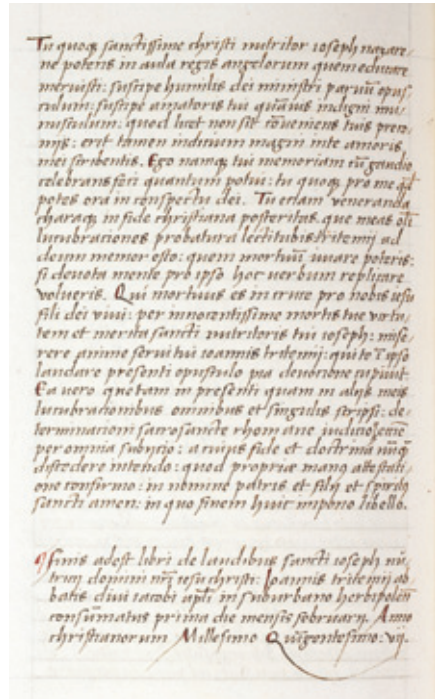 Tu quoq; sanctissime christi nutritor ioseph nazare,
ne poteris in aula regis angelorum quem educare
meruisti: suscipe humilis dei ministri paruu͞ opus,
culum: suscipe amatoris tui quāuis indigni mu,
nusculum: quod licet non sit cōueniens tuis preco,
nijs: erit tamen indicium magni in te amoris
mei scribentis. Ego namq; tui memoriam cū gaudio
celebrans feci quantum potui: tu quoq; pro me
potes ora in conspectu dei. Tu etiam veneranda
charaq; in fide christiana posteritas que meas
lucubraciones probatura lectitubis tritemij ad
deum memor esto: quem mortuū iuuare poteris:
si deuota mente pro ipso hoc verbum replicare
volueris. Qui mortuus es in cruce pro nobis iesu
fili dei viui: per innocentissime mortis tue virtu,
tem et merita sancti nutritoris tui ioseph: mise,
rere anime serui tui ioannis tritemij: qui te ī ipso
laudare presenti opusculo pia deuotione cupiuit.
Ea vero que tam in presenti quam in alijs meis
lucubrationibus omnibus et singulis scripsi: de,
terminacioni sacrosancte rhomane
per omnia subijcio: a cuius fide et doctrina nūq̄
discedere intendo: quod proprie manꝰ attestati,
one confirmo: in nomine patris et filij et spiritꝰ
sancti amen: in quo finem huic impono libello.
finis adest libri de laudibus sancti ioseph nu͞,
tricij domini nr͞i iesu christi: Ioannis tritemij ab,
batis diui iacobi apl͞i in suburbano herbipoleñ
consūmatus prima die mensis februarij. Anno
christianorum Millesimo Quīgentesimo: vij.